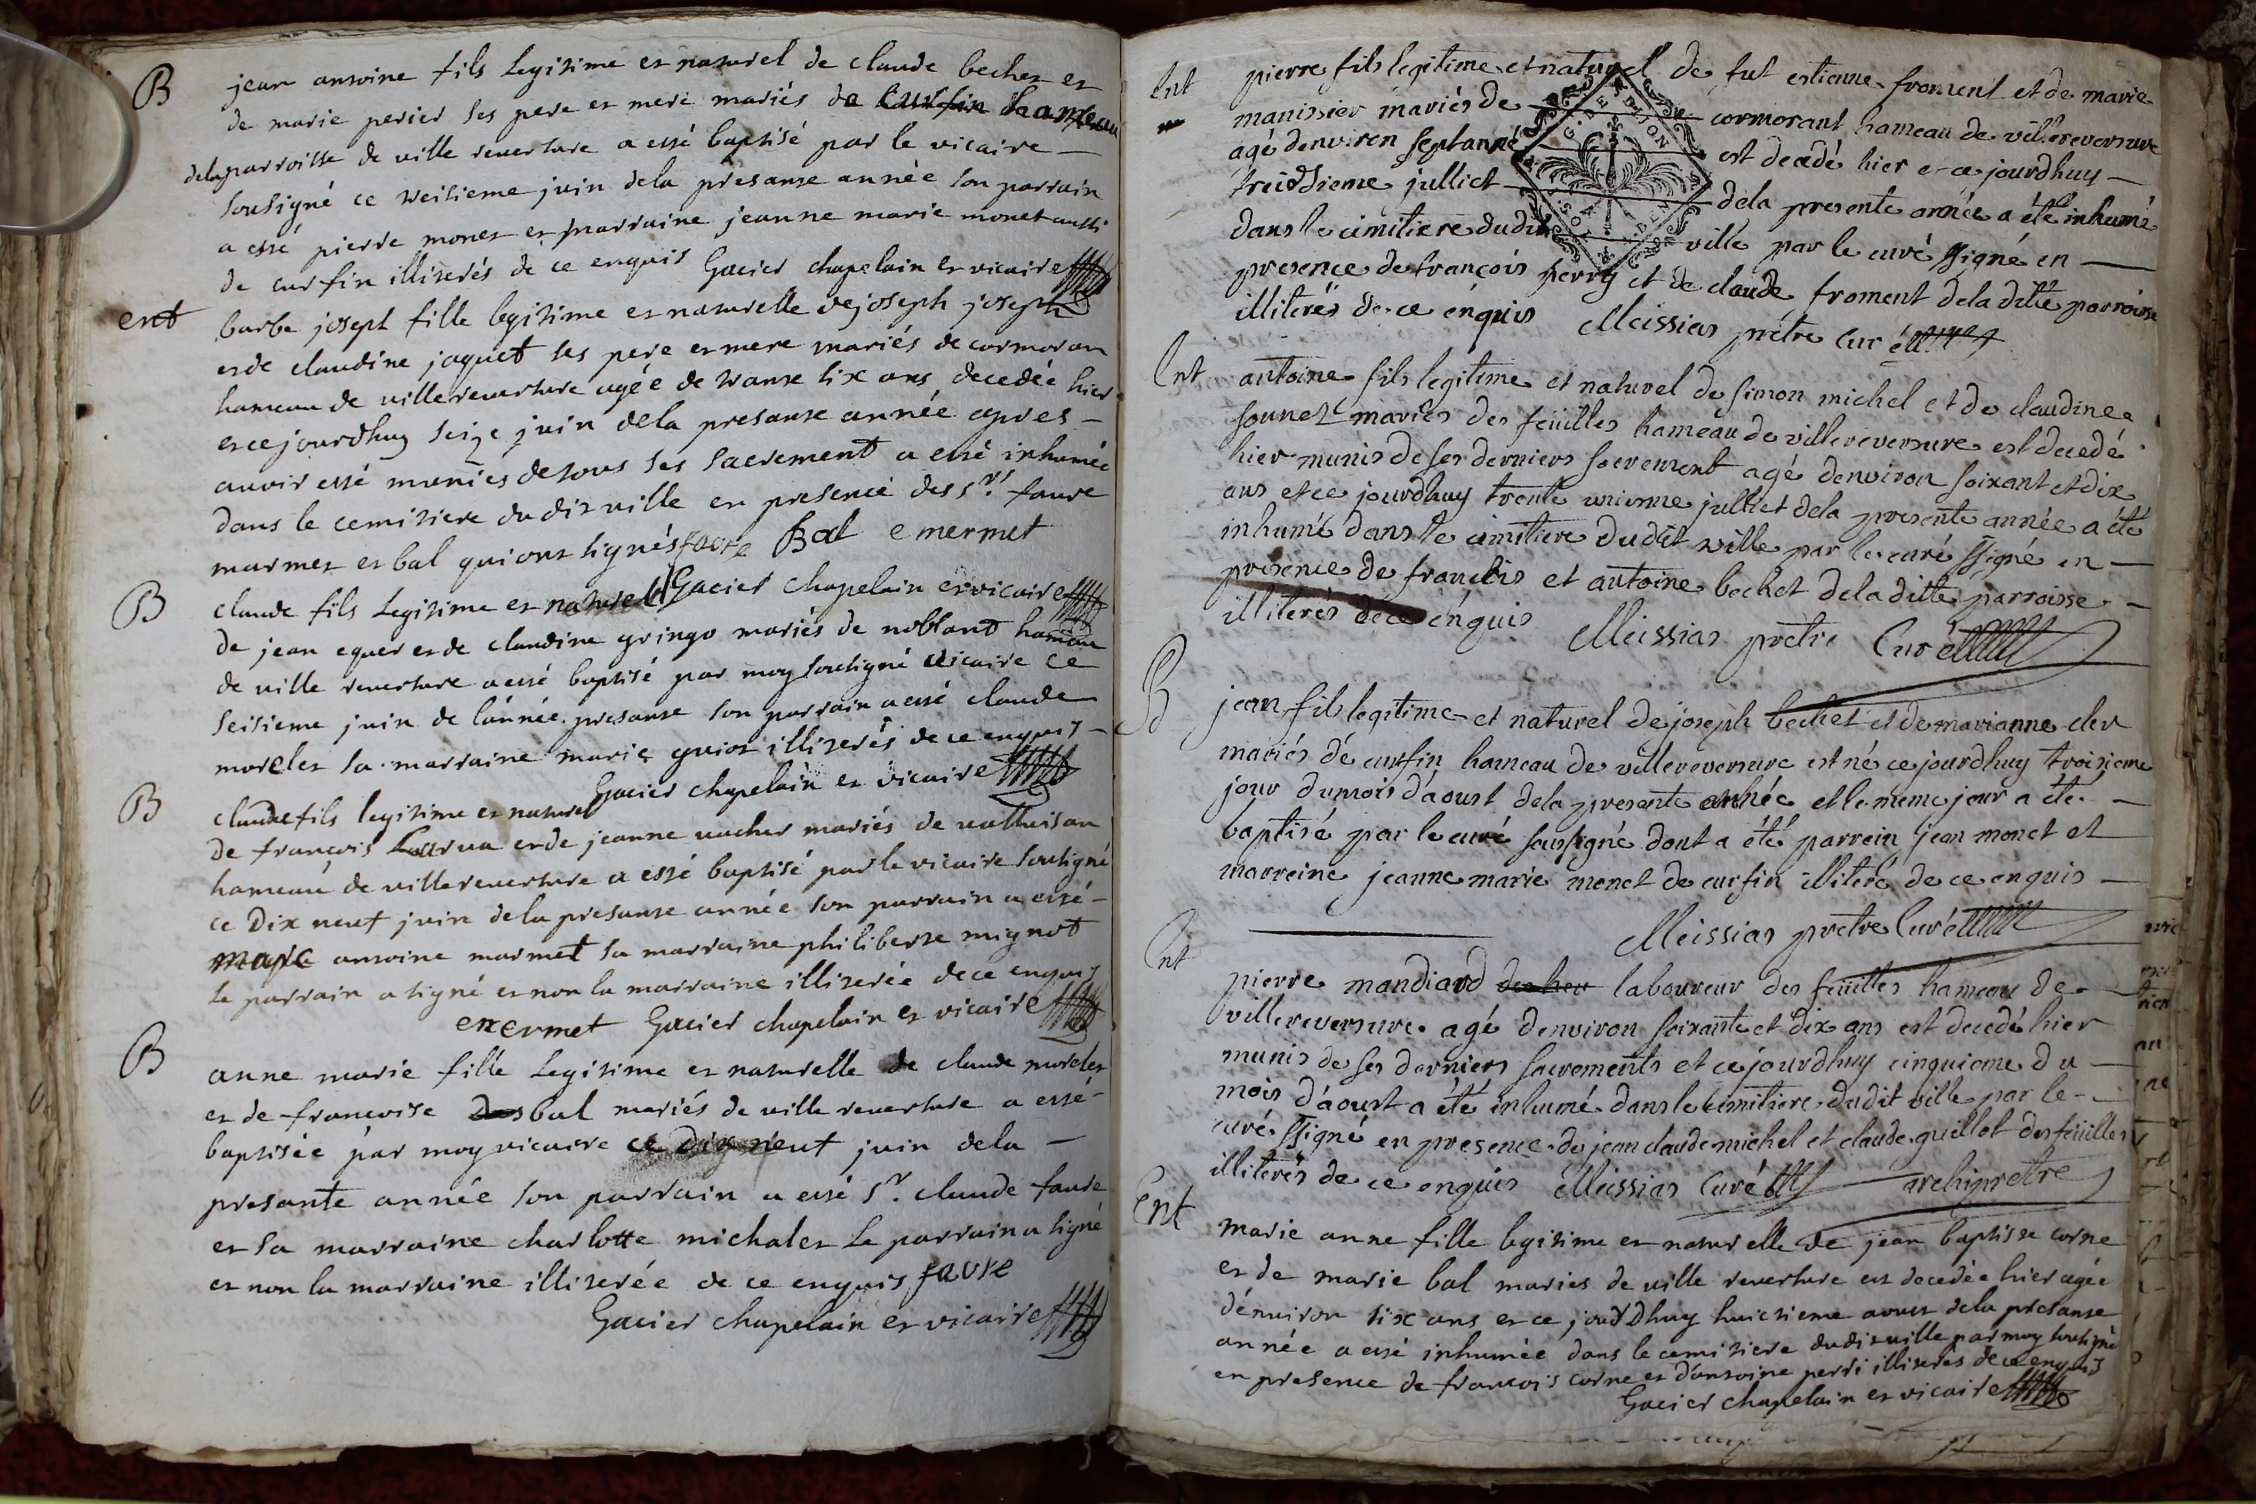 B
jean antoine fils legitime et naturel de claude bechet et
de marie perier ses pere et mere mariés de curfin hameau
dela parroisse de ville reversure a esté baptisé par le vicaire
sousigné ce seitieme juin dela presante année son parrain
a esté pierre monet et marraine jeanne marie monet aussi
de curfin illiterés de ce enquis Gacier chapelain et vicaire
ent
barbe joseph fille legitime et naturelle de joseph joseph
et de claudine jaquet ses pere et mere mariés de cormoran
hameau de ville reversure agée de trante six ans decedée hier
et ce jourdhuy seize juin dela presante année apres
avoir esté munies de tous ses sacrement a esté inhumée
dans le cemitiere dudit ville en presence des srs. favre
marmet et bal qui ont signés favre Bal e mermet
Gacier chapelain et vicaire
B
claude fils legitime et naturel
de jean equer et de claudine gringo mariés de noblant hameau
de ville reversure a esté baptisé par moy soutigné vicaire ce
seisieme juin de l'année presante son parrain a esté claude
morelet sa marraine marie guiot illiterés de ce enquis
Gacier chapelain et vicaire
B
claude fils legitime et naturel
de francois et de jeanne vacher mariés de
hameau de ville reversure a esté baptisé par le vicaire soutigné
ce dix neuf juin dela presante année son parrain a esté
marc antoine marmet sa marraine philiberte mignot
le parrain a signé et non la marraine illiterée de ce enquis
mermet Gacier chapelain et vicaire
B
anne marie fille legitime et naturelle de claude morelet
et de francoise bal mariés de ville reversure a esté
baptisée par moy vicaire ce dix neuf juin dela
presante année son parrain a esté sr. claude favre
et sa marraine charlotte michalet le parrain a signé
et non la marraine illiterée de ce enquis favre
Gacier chapelain et vicaire
Ent
pierre fils legitime et naturel de fut estienne froment et de marie
manissier mariés de cormorant hameau de villereversure
agé denviron sept année est decedé hier et ce jourdhuy
treisieme julliet dela presente année a été inhumé
dans le cimitiere dudit ville par le curé ssigné en
presence de françois perry et de claude froment dela ditte parroisse
illiterés de ce enquis Meissias prêtre Curé
G. DE DIJON
Ent
antoine fils legitime et naturel de simon michel et de claudine
sounet mariés des feüilles hameau de villereversure est decedé
hier munis de ses derniers sacrement agé denviron soixant et dix
ans et ce jourdhuy trente unieme julliet dela presente année a été
inhumé dans le cimitiere dudit ville par le curé ssigné en
presence de francois et antoine bechet dela ditte parroisse
illiterés de ce enquis Meissias prêtre Curé
B
jean fils legitime et naturel de joseph bechet et de marianne
mariés de curfin hameau de villereversure est né ce jourdhuy troisieme
jour du mois d'aoust dela presente année et le meme jour a été
baptisé par le curé soussigné dont a été parrein jean monet et
marreine jeanne marie monet de curfin illiteré de ce enquis
Meissias prêtre Curé
Ent
pierre mandiard laboureur des feüilles hameau de
villereversure agé denviron soixante et dix ans est decedé hier
munis de ses derniers sacrements et ce jourdhuy cinquieme du
mois d'aoust a été inhumé dans le cimitiere dudit ville par le
curé ssigné en presence de jean claude michel et claude guillot des feüilles
illiterés de ce enquis Meissias Curé archiprêtre
Ent
marie anne fille legitime et naturelle de jean baptiste corne
et de marie bal maries de ville reversure est decedée hier agée
d'environ six ans et ce jourdhuy huictieme aoust dela presante
année a esté inhumée dans le cemitiere dudit ville par moy soutigné
en presence de francois corne et d'antoine perri illiterés de ce enquis
Gacier chapelain et vicaire